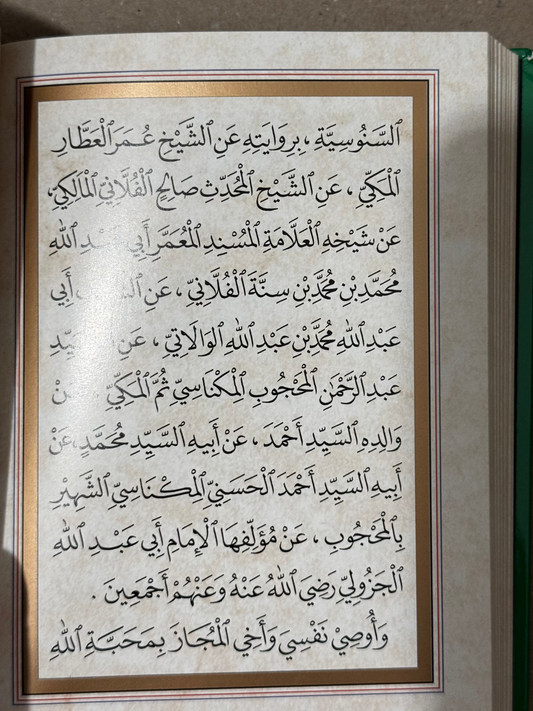 ٱلسَّنُوسِيَّةِ ، بِرِوَايَتِهِ عَنِ ٱلشَّيْخِ عُمَرَ ٱلْعَطَّارِ
ٱلْمَكِّيِّ ، عَنِ ٱلشَّيْخِ ٱلْمُحَدِّثِ صَالِحٍ ٱلْفُلَّانِيِّ ٱلْمَالِكِيِّ،
عَنْ شَيْخِهِ ٱلْعَلَّامَةِ ٱلْمُسْنِدِ ٱلْمُعَمَّرِ أَبِي ٱللهِ
مُحَمَّدِ بْنِ مُحَمَّدِ بْنِ سِنَّةَ ٱلْفُلَّانِيِّ ، عَنِ أَبِي
عَبْدِ ٱللهِ مُحَمَّدِ بْنِ عَبْدِ ٱللهِ ٱلْوَالَاتِيِّ ، عَنِ
عَبْدِ ٱلرَّحْمٰنِ ٱلْمَحْجُوبِ ٱلْمِكْنَاسِيِّ ثُمَّ ٱلْمَكِّيِّ
وَالِدِهِ ٱلسَّيِّدِ أَحْمَدَ ، عَنْ أَبِيهِ ٱلسَّيِّدِ مُحَمَّدٍ، عَنْ
أَبِيهِ ٱلسَّيِّدِ أَحْمَدَ ٱلْحَسَنِيِّ ٱلْمِكْنَاسِيِّ ٱلشَّهِيْرِ
بِٱلْمَحْجُوبِ ، عَنْ مُؤَلِّفِهَا ٱلْإِمَامِ أَبِي عَبْدِ ٱللهِ
ٱلْجَزُولِيِّ رَضِيَ ٱللهُ عَنْهُ وَعَنْهُمْ أَجْمَعِينَ .
وَأُوصِيْ نَفْسِيَ وَأَخِي ٱلْمُجَازَ بِمَحَبَّةِ ٱللهِ